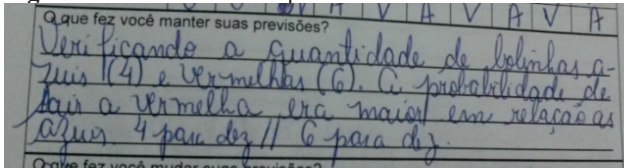 V A V A V A
O que fez você manter suas previsões?
Verificando a quantidade de bolinhas a-
zuis (4) e vermelhas (6). A probabilidade de
sair a vermelha era maior em relação as
azuis. 4 para dez // 6 para dez.
O que fez você mudar suas previsões?